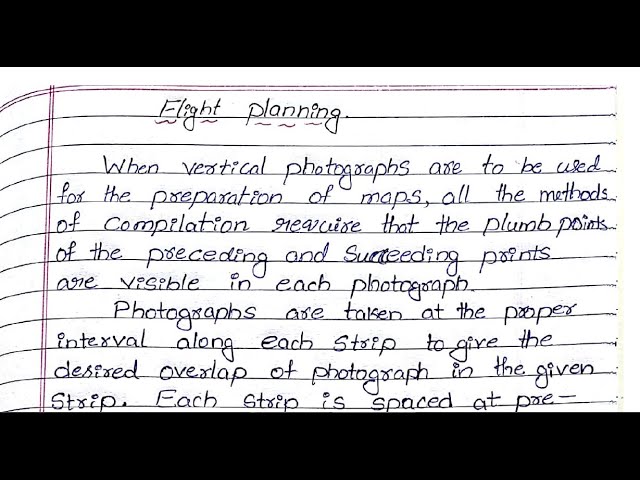 Flight planning.
When vertical photographs are to be used
for the preparation of maps, all the methods
of compilation require that the plumb points
of the preceding and succeeding prints
are visible in each photograph.
Photographs are taken at the proper
interval along each strip to give the
desired overlap of photograph in the given
strip. Each strip is spaced at pre-